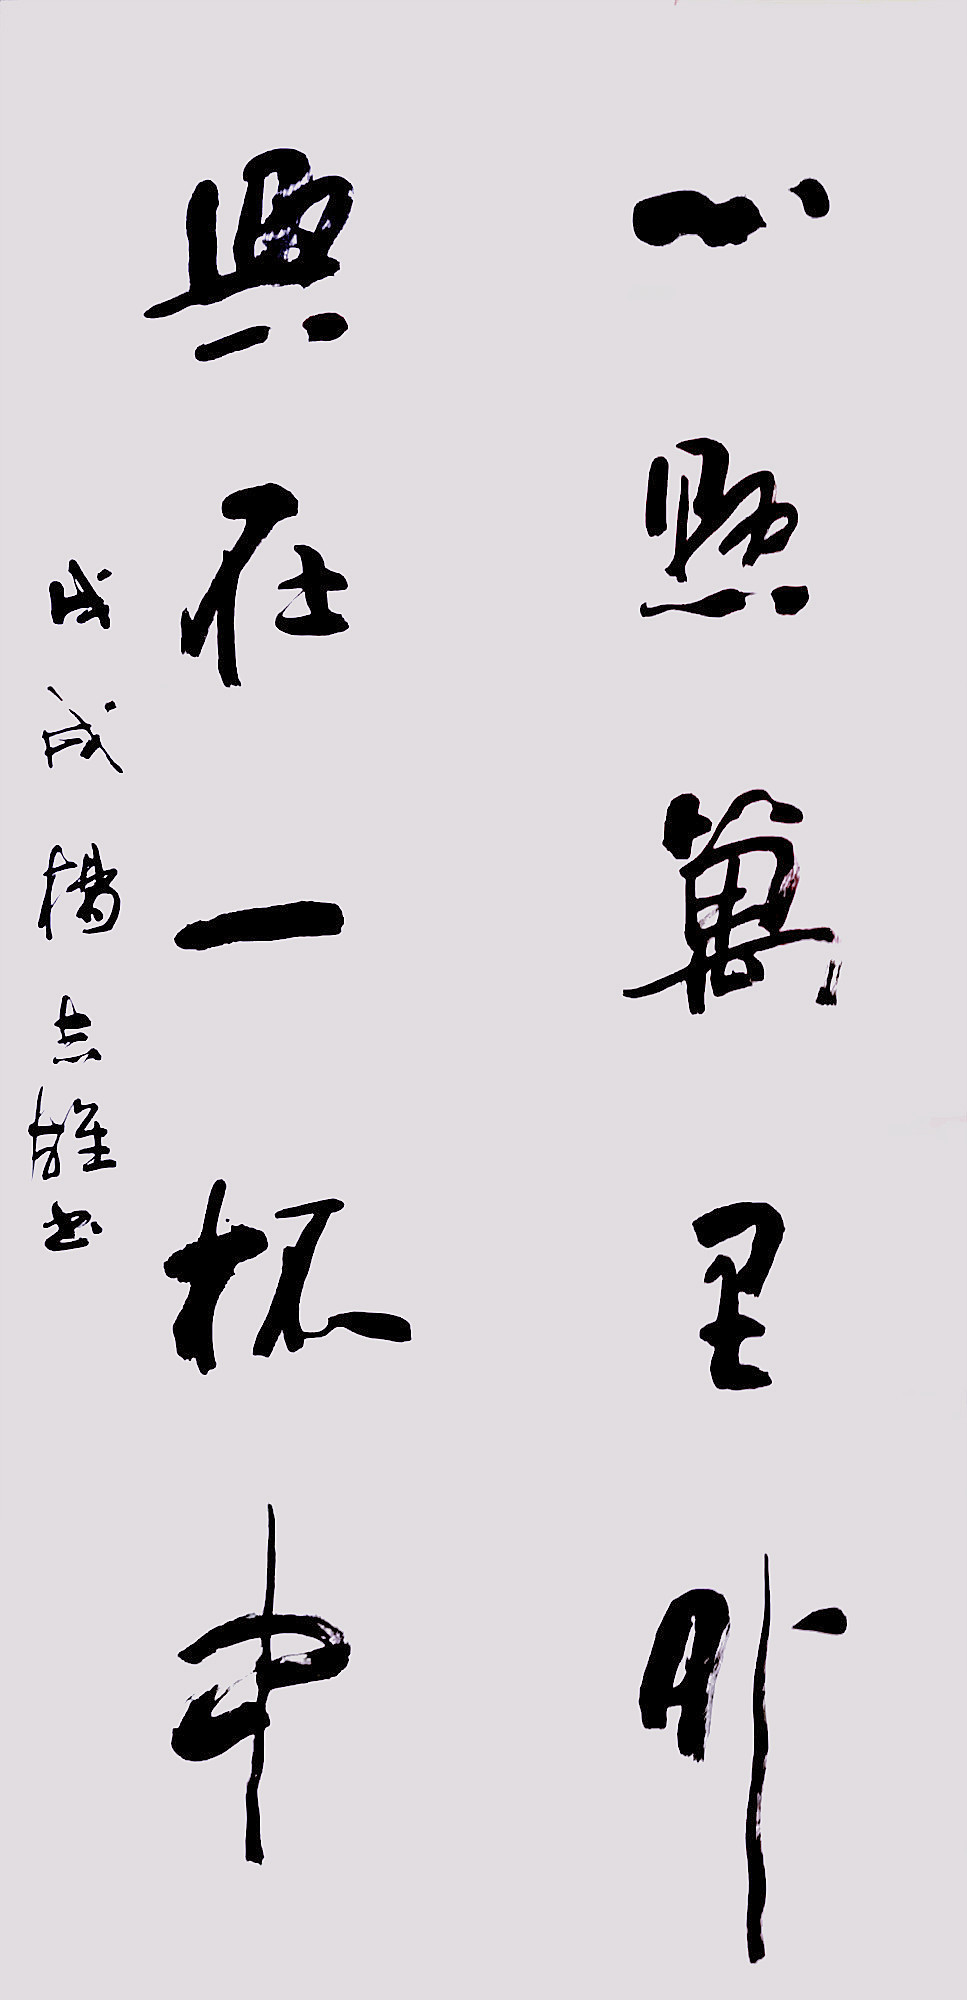 心懸萬里外
興在一杯中
戊戌楊志雄书